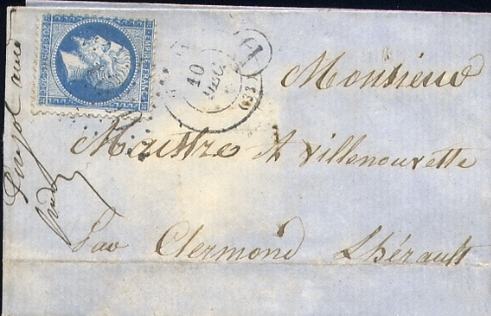 EMPIRE FRANC
10
(33)
A
Monsieur
Maistre A Villenouvette
Par Clermond Lhérault